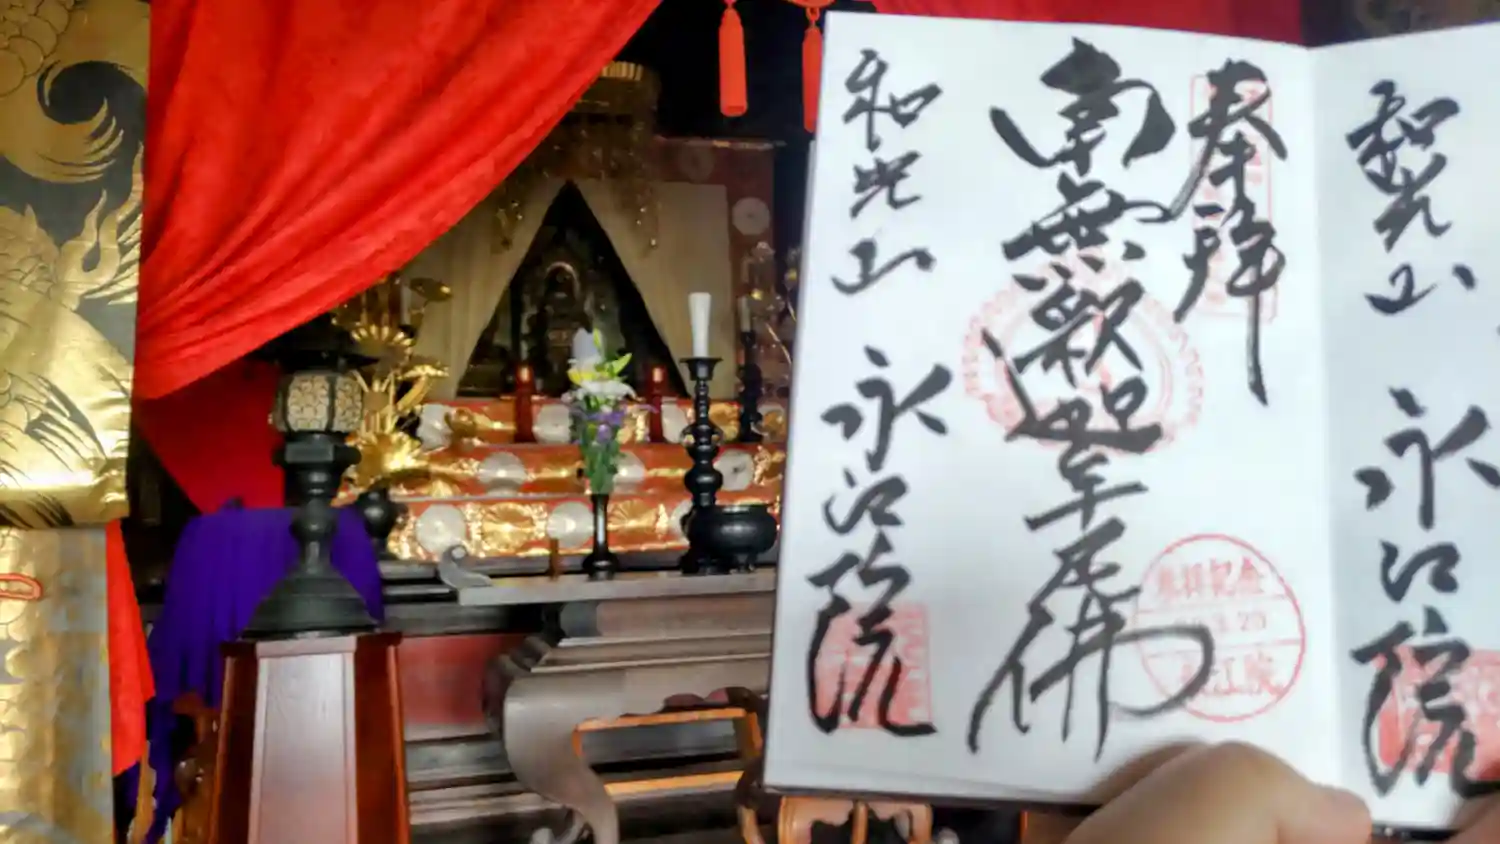 和光山 永江院
奉拝
南無釈迦牟尼佛
和光山 永江院
参拝記念
永江院